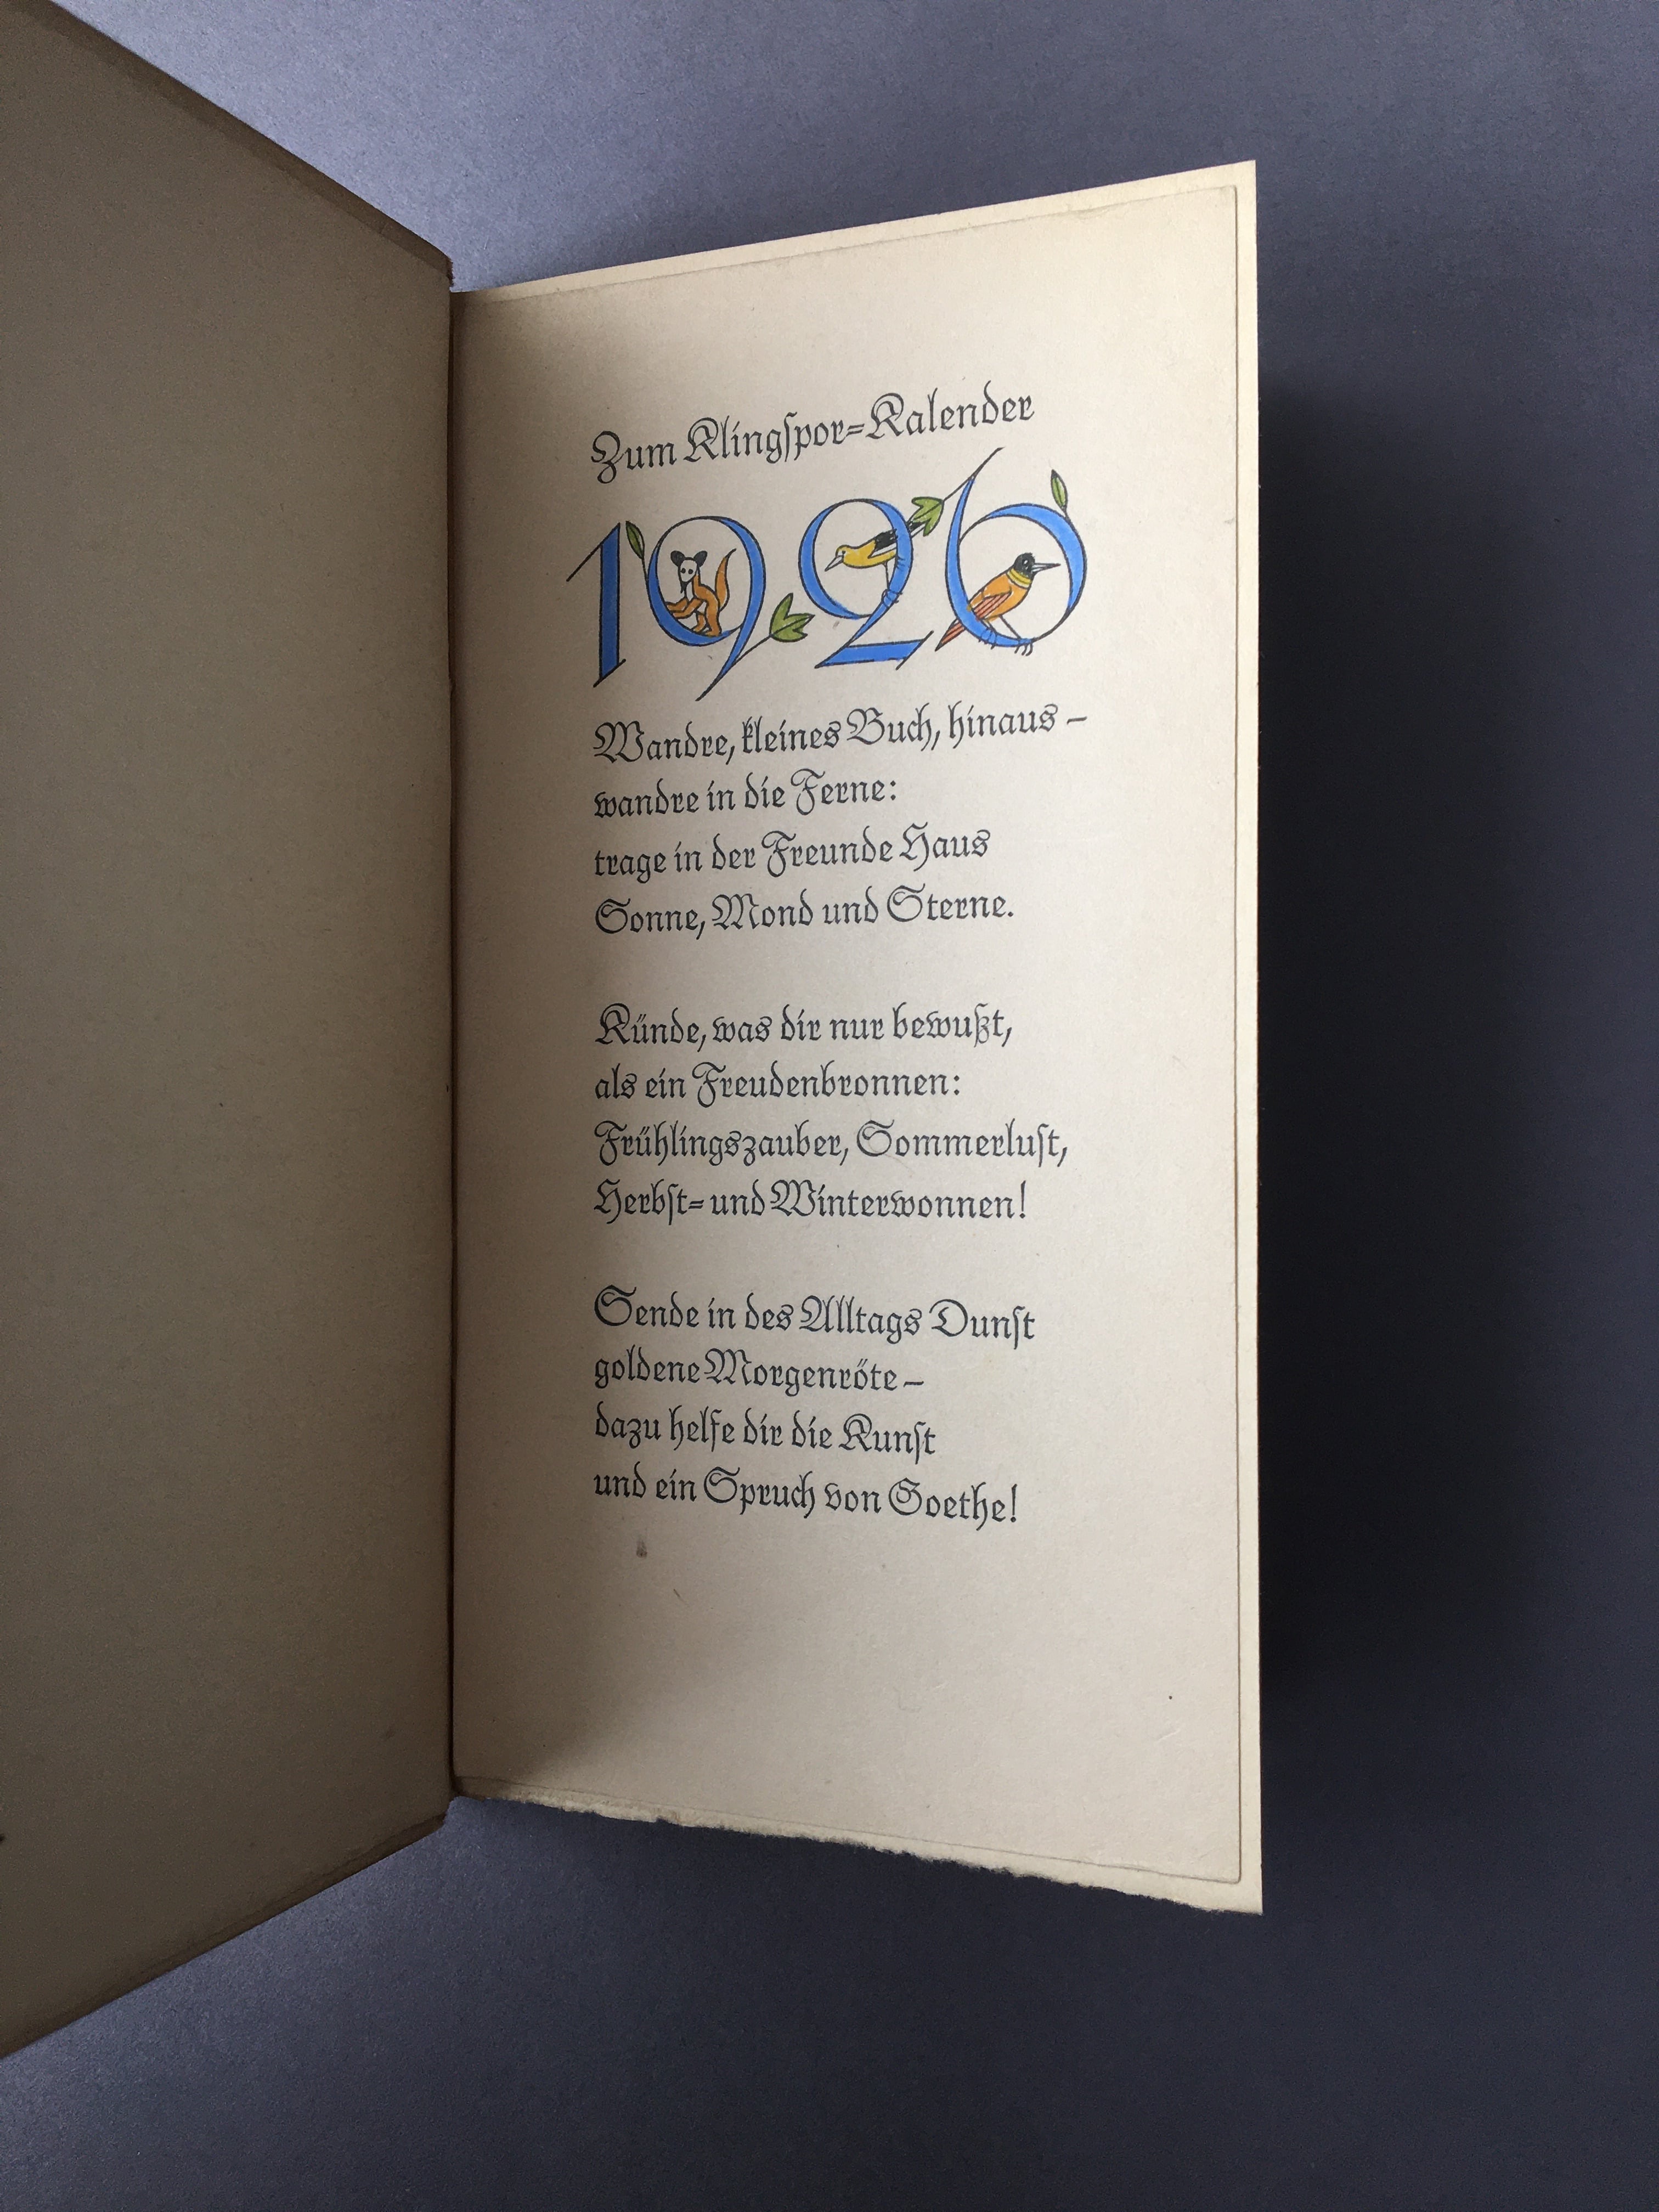 Zum Klingſpor-Kalender
1926
Wandre, kleines Buch, hinaus –
wandre in die Ferne:
trage in der Freunde Haus
Sonne, Mond und Sterne.
Künde, was dir nur bewußt,
als ein Freudenbronnen:
Frühlingszauber, Sommerluſt,
Herbſt- und Winterwonnen!
Sende in des Alltags Dunſt
goldene Morgenröte –
dazu helfe dir die Kunſt
und ein Spruch von Goethe!